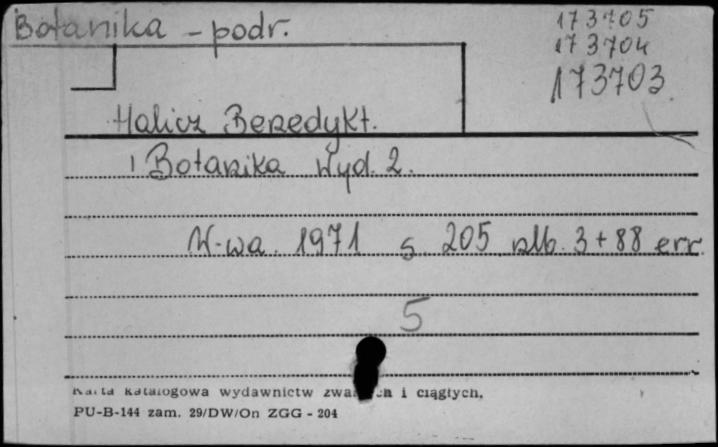 Botanika - podr.
173705
173704
173703
Halicz Benedykt.
Botanika Wyd. 2.
W-wa. 1971 s. 205 nlb. 3 + 88 err.
5
Karta katalogowa wydawnictw i ciągłych.
PU-B-144 zam. 29/DW/On ZGG - 204